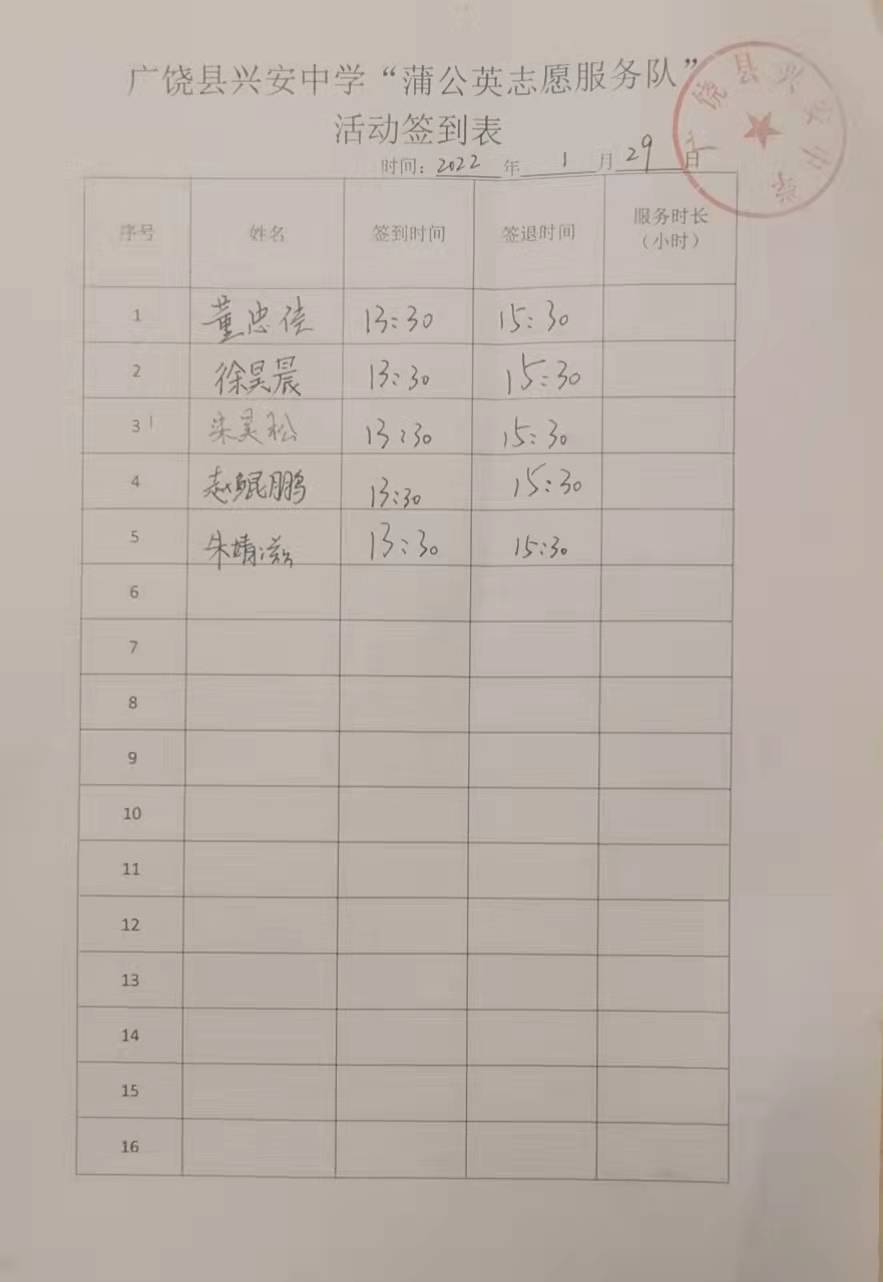 广饶县兴安中学“蒲公英志愿服务队”
活动签到表
广饶县兴安中学
时间：2022 年 1 月 29 日
序号 姓名 签到时间 签退时间 服务时长（小时）
1 董忠信 13:30 15:30
2 徐昊晨 13:30 15:30
3 栾昊松 13:30 15:30
4 赵鲲鹏 13:30 15:30
5 朱婧滋 13:30 15:30
6
7
8
9
10
11
12
13
14
15
16